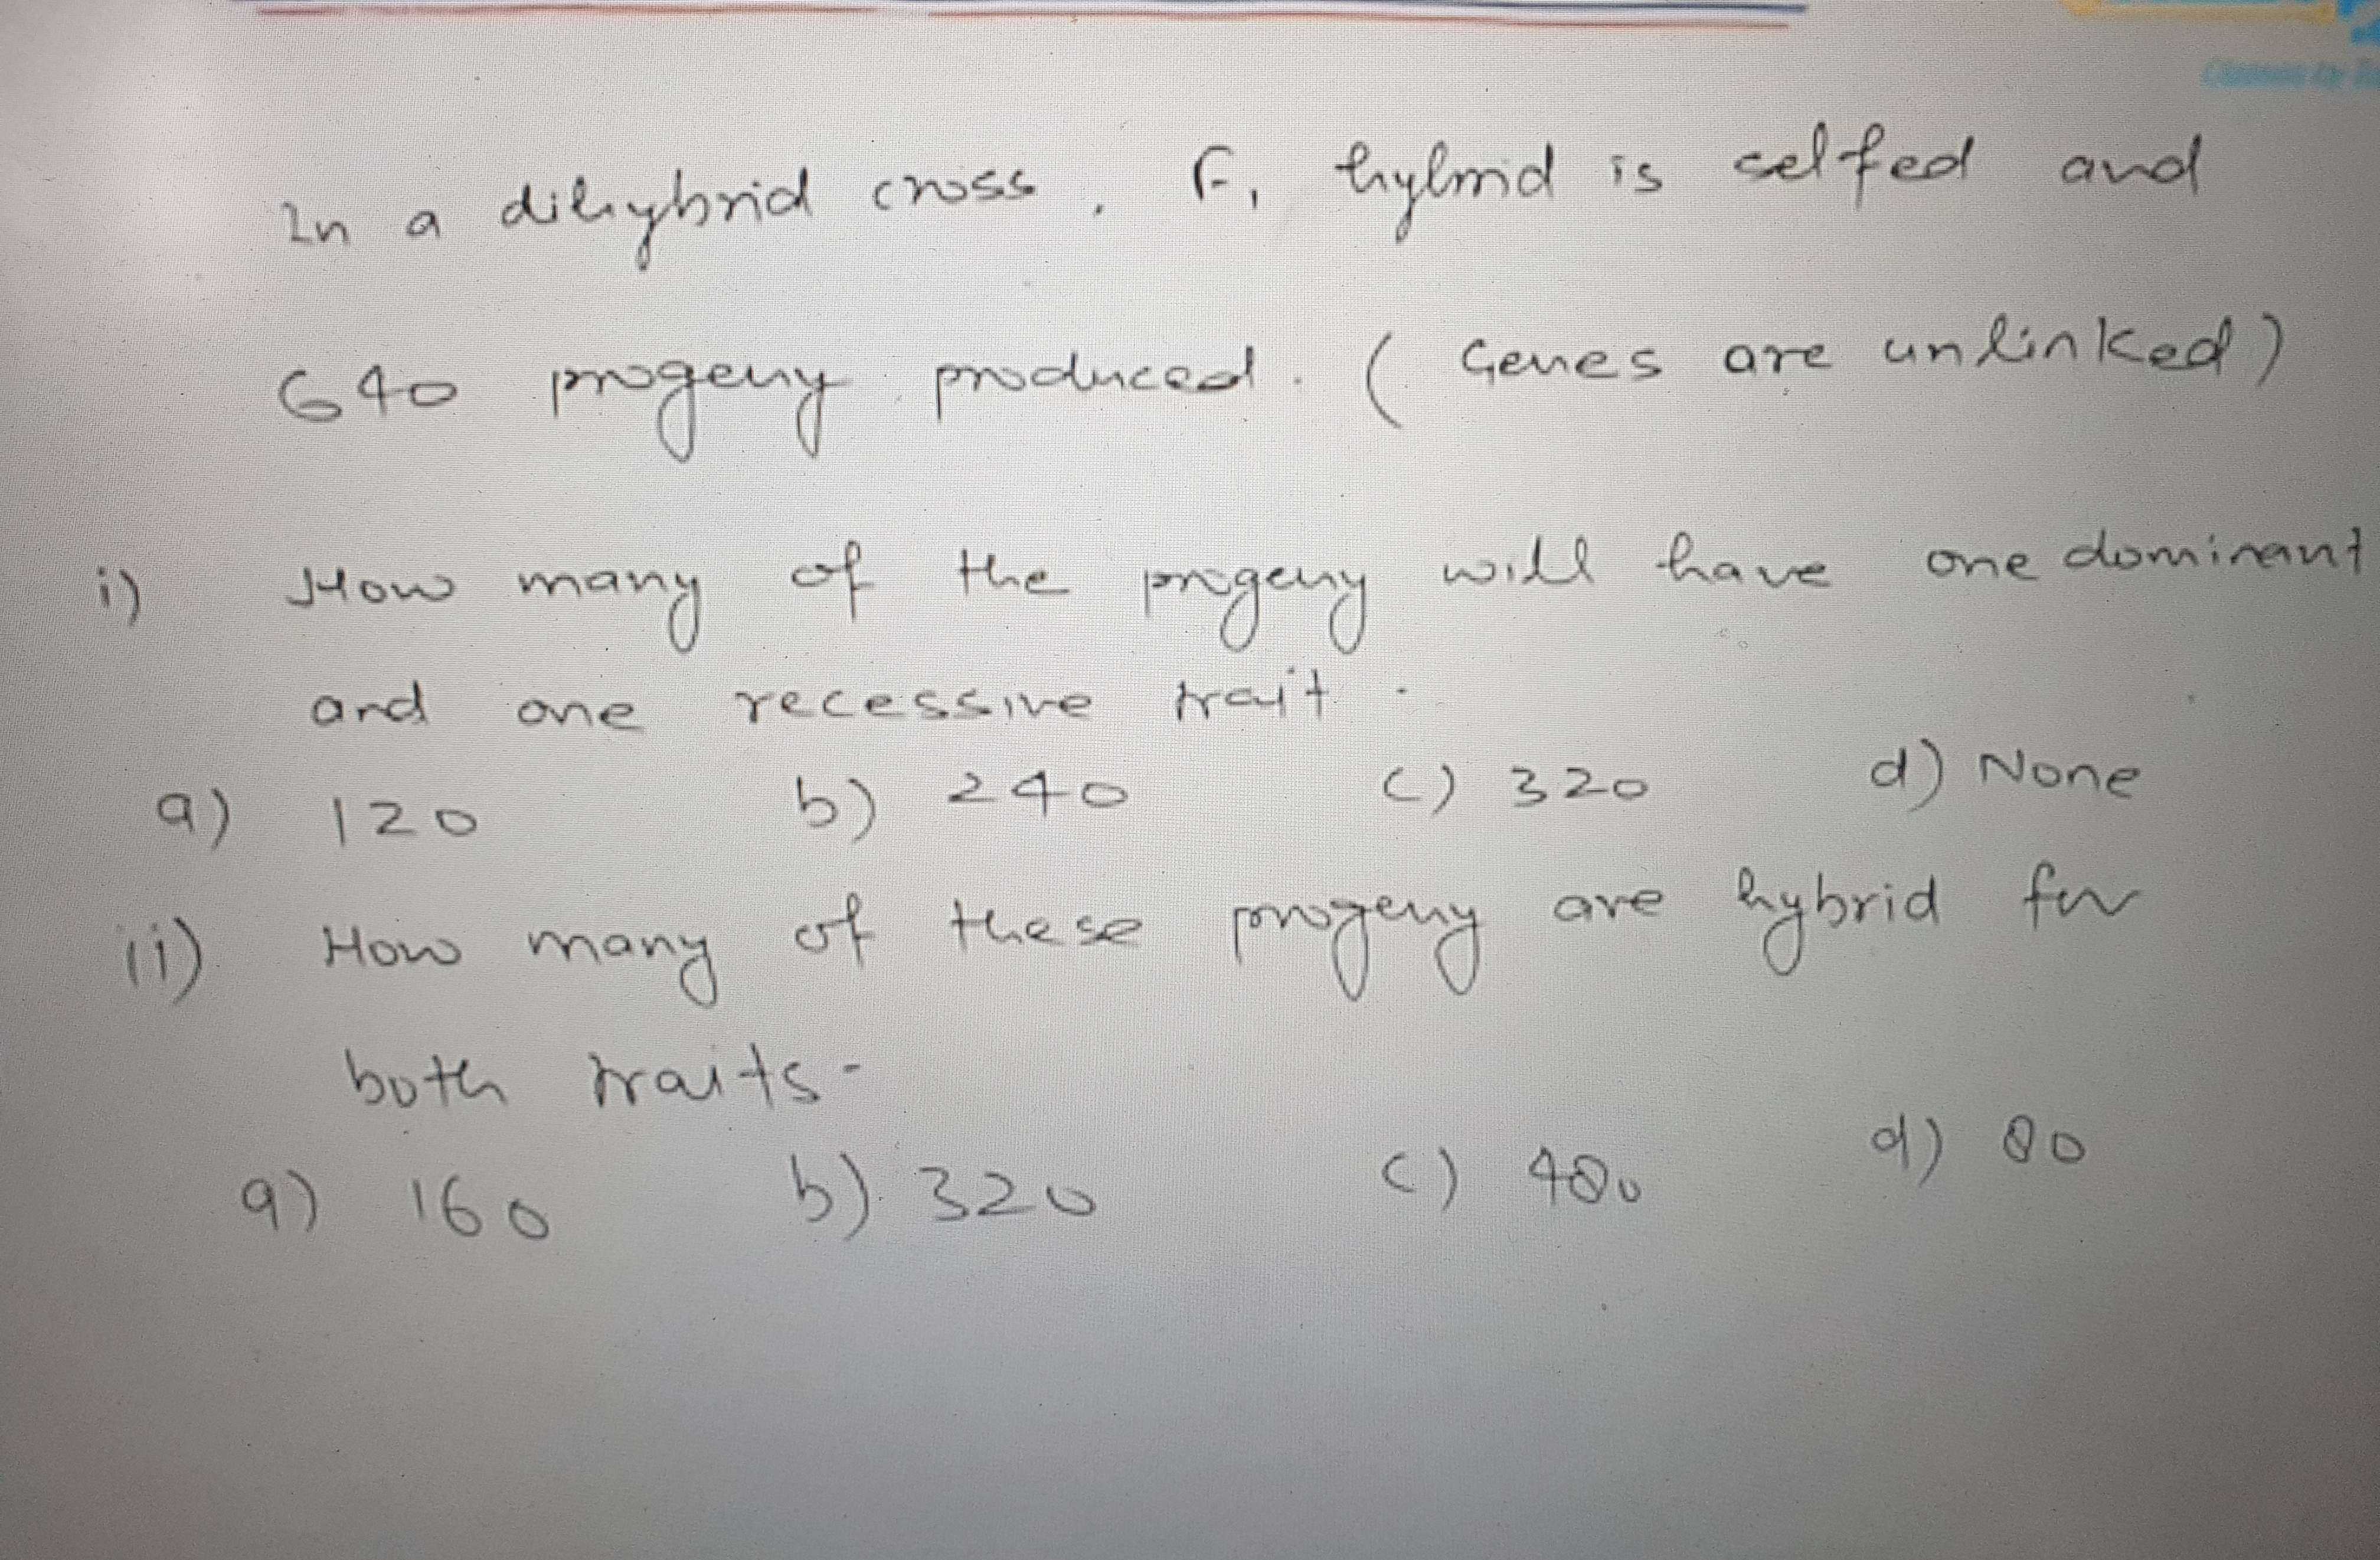 In a dihybrid cross, F1 hybrid is selfed and
640 progeny produced. (Genes are unlinked)
i) How many of the progeny will have one dominant
and one recessive trait.
a) 120 b) 240 c) 320 d) None
ii) How many of these progeny are hybrid for
both traits-
a) 160 b) 320 c) 480 d) 80